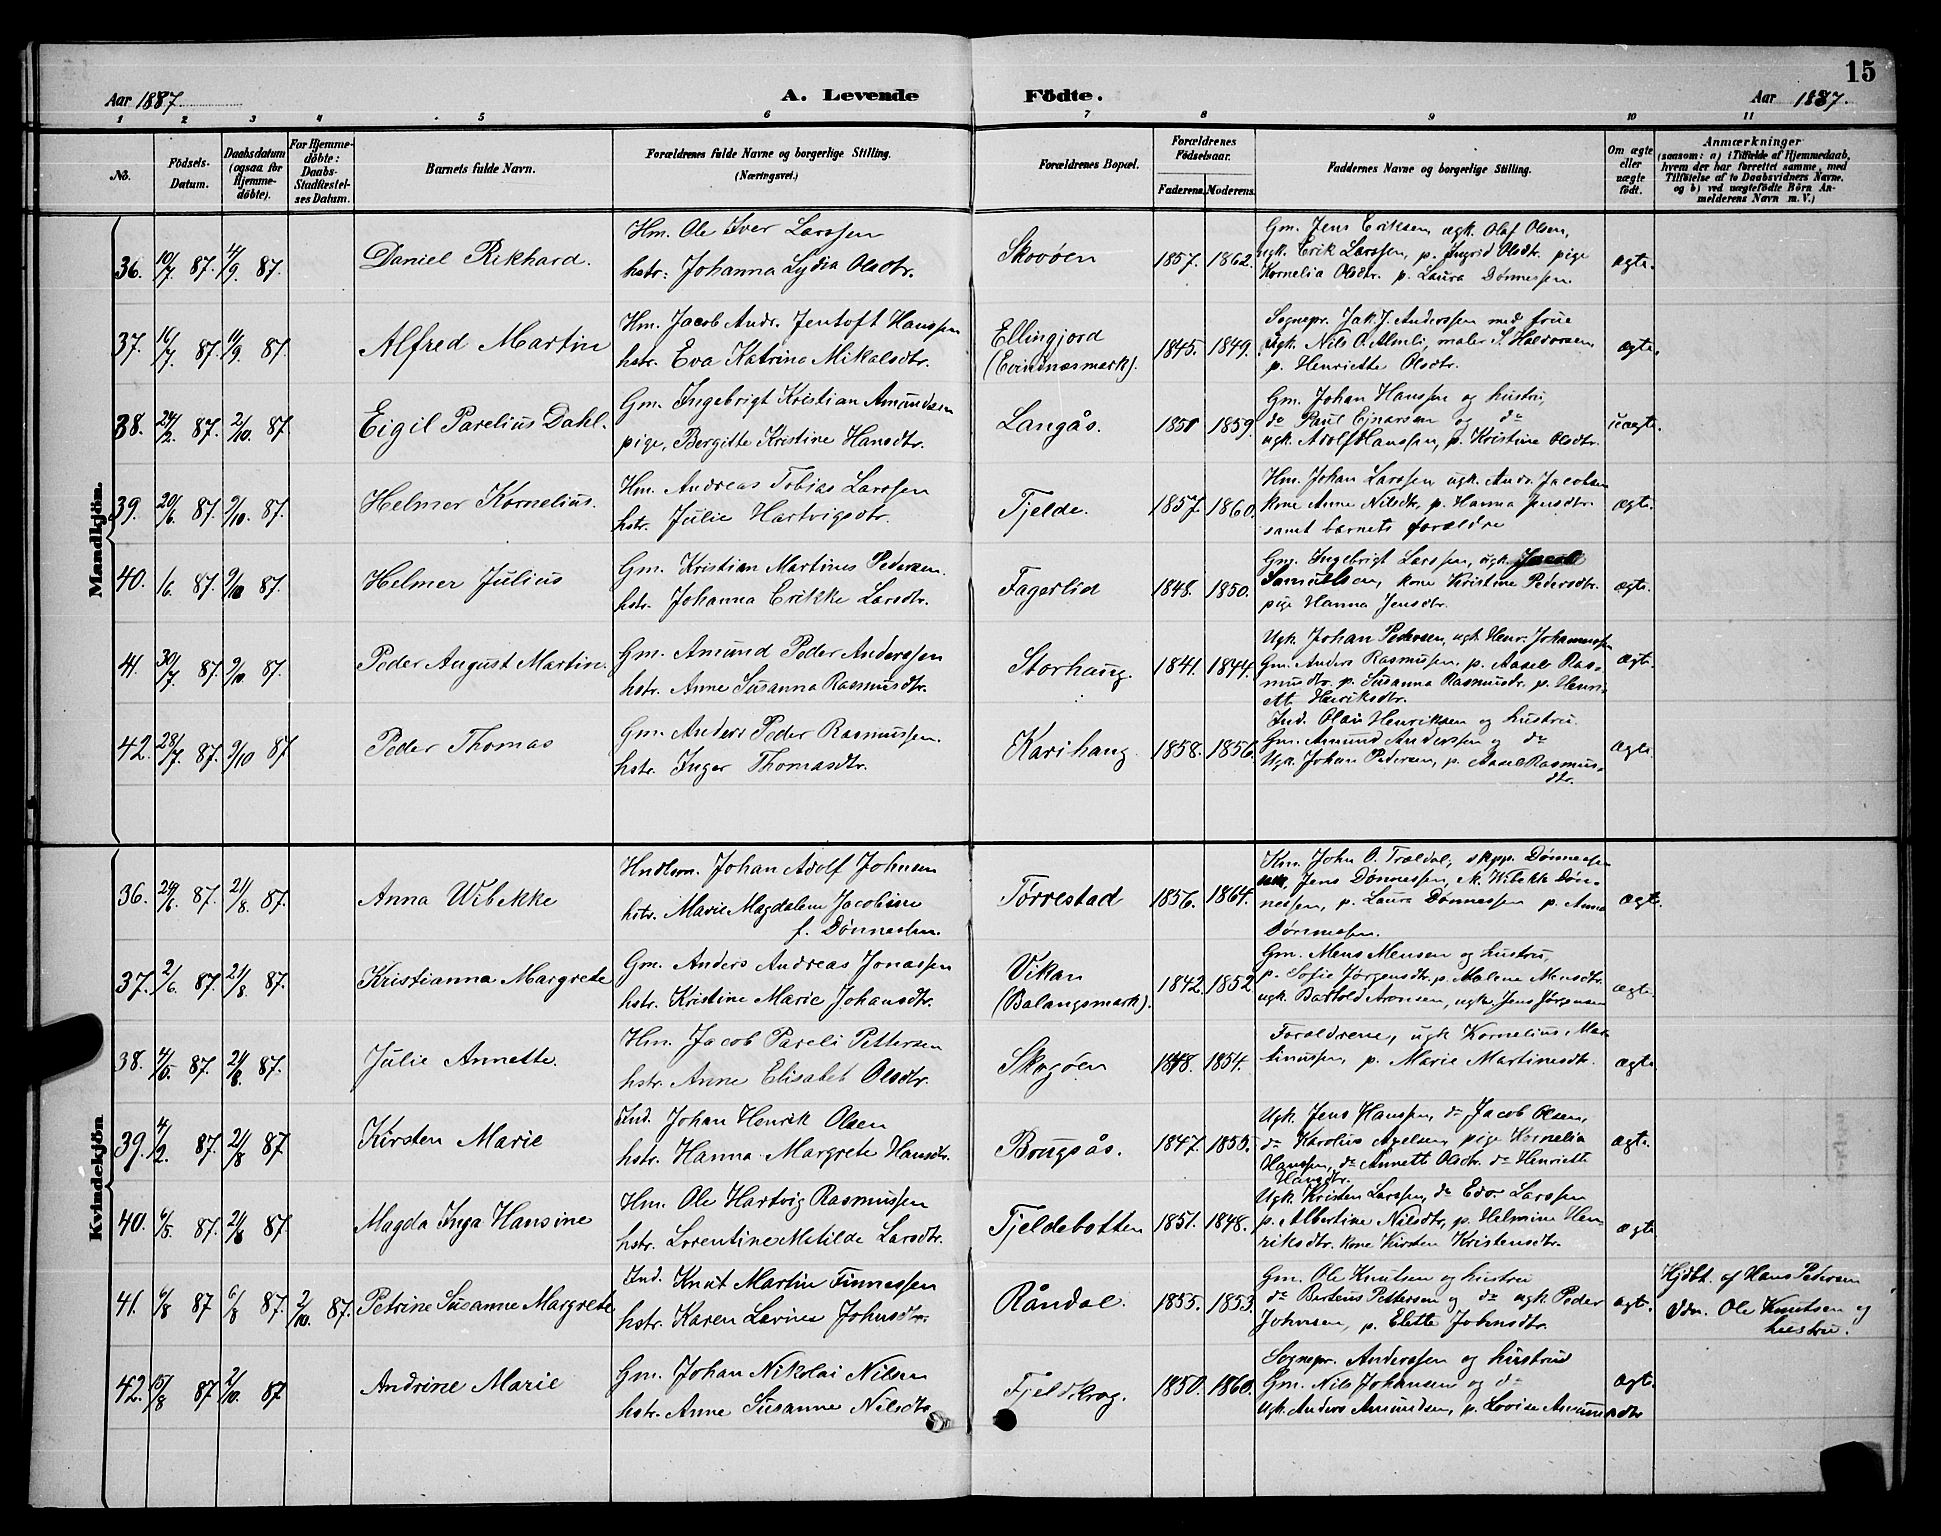 15
Aar 1887 A. Levende Födte. Aar 1887.
1 2 3 4 5 6 7 8 9 10 11
No. Födsels-Datum. Daabsdatum (ogsaa for Hjemmedöbte). For Hjemmedöbte: Daabs-Stadfæstelses Datum. Barnets fulde Navn. Forældrenes fulde Navne og borgerlige Stilling. (Næringsvei.) Forældrenes Bopæl. Forældrenes Födselsaar. Faderens. Moderens. Faddernes Navne og borgerlige Stilling. Om ægte eller uægte födt. Anmærkninger (saasom: a) i Tilfælde af Hjemmedaab, hvem der har forrettet samme, med Tilföielse af to Daabsvidners Navne, og b) ved uægtefödte Börn Anmelderens Navn m. V.)
Mandkjön.
36. 10/7 87. 4/9 87. Daniel Rikhard. Hm. Ole Iver Larssen
hstr: Johanna Lydia Olsdtr. Skovöen 1857. 1862. Gm. Jens Eriksen, ugk. Olaf Olsen,
ugk. Erik Larssen, p. Ingrid Olsdtr. pige
Kornelia Olsdtr. p. Laura Dønnessen. ægte.
37. 16/7 87. 11/9 87. Alfred Martin Hm. Jacob Andr. Jentoft Hanssen
hstr. Eva Katrina Mikalsdtr. Ellingjord
(Evindnæsmark). 1845. 1849. Sognepr. Jak. J. Anderssen med frue
ugk. Nils O. Almli, maler S. Haldorsen,
p. Henriette Olsdtr. ægte.
38. 24/2 87. 2/10. 87. Eigil Parelius Dahl. Gm. Ingebrigt Kristian Amundsen
pige, Bergitte Kristine Hansdtr. Langås. 1851 1859. Gm. Johan Hanssen og hustru,
do Paul Ejnarsen og do
ugk. Adolf Hanssen, p. Kristine Olsdtr. uægte.
39. 20/6. 87. 9/10. 87. Helmer Kornelius. Hm. Andreas Tobias Larssen
hstr. Julie Hartvigsdtr. Tjelde. 1857. 1860. Hm. Johan Larssen ugk. Andr. Jacobsen
kone Anne Nilsdtr, p. Hanna Jensdtr.
samt barnets forældre ægte.
40. 1/6. 87. 9/10 87. Helmer Julius Gm. Kristian Martinus Pedersen.
hstr. Johanna Erikke Larsdtr. Fagerlid 1848. 1850. Gm. Ingebrigt Larssen, ugk. Jacob
Samuelsen, kone Kristine Pedersdtr.
pige Hanna Jensdtr. ægte.
41. 30/7 87. 9/10. 87. Peder August Martin. Gm. Amund Peder Anderssen
hstr. Anne Susanna Rasmusdtr. Storhaug. 1841. 1844. Ugk. Johan Pedersen, ugk. Henr. Johannessen
Gm. Anders Rasmussen, p. Aasel Ras-
musdtr. p. Susanna Rasmusdtr. p. Henri-
ette Henriksdtr. ægte.
42. 28/7. 87. 9/10 87. Peder Thomas Gm. Anders Peder Rasmussen.
hstr. Inger Thomasdtr. Karihaug 1858. 1856. Ind. Olai Henriksen og hustru.
Gm. Amund Anderssen og do
Ugk. Johan Pedersen, p. Aasel Rasmus-
dtr. ægte.
Kvindekjön
36. 24/6. 87. 21/8. 87. Anna Wibekke Hndlsm. Johan Adolf Johnsen
hstr. Marie Magdalene Jacobine
f. Dönnessen. Tørrestad 1856. 1864. Km. John O. Trældal, skpp. Dønnessen
Jens Dønnessen, M. Wibekk Døn-
nessen, p. Laura Dønnessen p. Anna
Dønnessen. ægte.
37. 2/6. 87. 21/8. 87. Kristianna Margrete Gm. Anders Andreas Jonassen
hstr. Kristine Marie Johansdtr. Vikan
(Balangsmark). 1842. 1852 Gm. Mens Mensen og hustru,
p. Sofie Jørgensdtr, p. Malene Mensdtr.
ugk. Bartold Aronsen, ugk. Jens Jørgensen ægte.
38. 4/5. 87. 21/8. 87. Julie Annette. Hm. Jacob Pareli Pettersen
hstr. Anne Elisabet Olsdtr. Skogøen 1848. 1854. Forældrene, ugk Kornelius Mar-
tinussen, p. Marie Martinesdtr. ægte.
39. 4/2. 87. 21/8 87. Kirsten Marie Ind. Johan Henrik Olsen
hstr. Hanna Margrete Hansdtr. Brugsås. 1847. 1855. Ugk. Jens Hanssen, do Jacob Olsen,
do Karolius Agelsen, pige Kornelia
Hanssen, do Annette Olsdtr. do Henriette
Hansdtr. ægte.
40. 6/5. 87. 21/8 87. Magda Inga Hansine Hm. Ole Hartvig Rasmussen
hstr. Lorentine Matilde Larsdtr. Tjeldebotten 1851. 1848. Ugk. Kristen Larssen, do Edv. Larssen
p. Albertine Nilsdtr, p. Helmine Hen-
riksdtr. kone Kirsten Kristensdtr. ægte
41. 6/8 87 6/8 87. 2/10. 87. Petrine Susanne Margrete Ind. Knut Martin Finnessen
hstr. Karen Lavine Johnsdtr. Råndal. 1855. 1853. Gm. Ole Knutsen og hustru
do Berteus Pettersen og do ugk. Peder
Johnsen, p. Elette Johnsdtr. ægt. Hjdbt. af Hans Pedersen
Vdn. Ole Knutsen og
hustru.
42. 15/8 87. 2/10. 87. Andrine Marie Gm. Johan Nikolai Nilsen
hstr. Anne Susanne Nilsdtr Fjeldkrog. 1850. 1860. Sognepr. Anderssen og hustrud
Gm. Nils Johansen og do
Ugk. Anders Amundsen, p. Lovise Amundsdtr ægt.